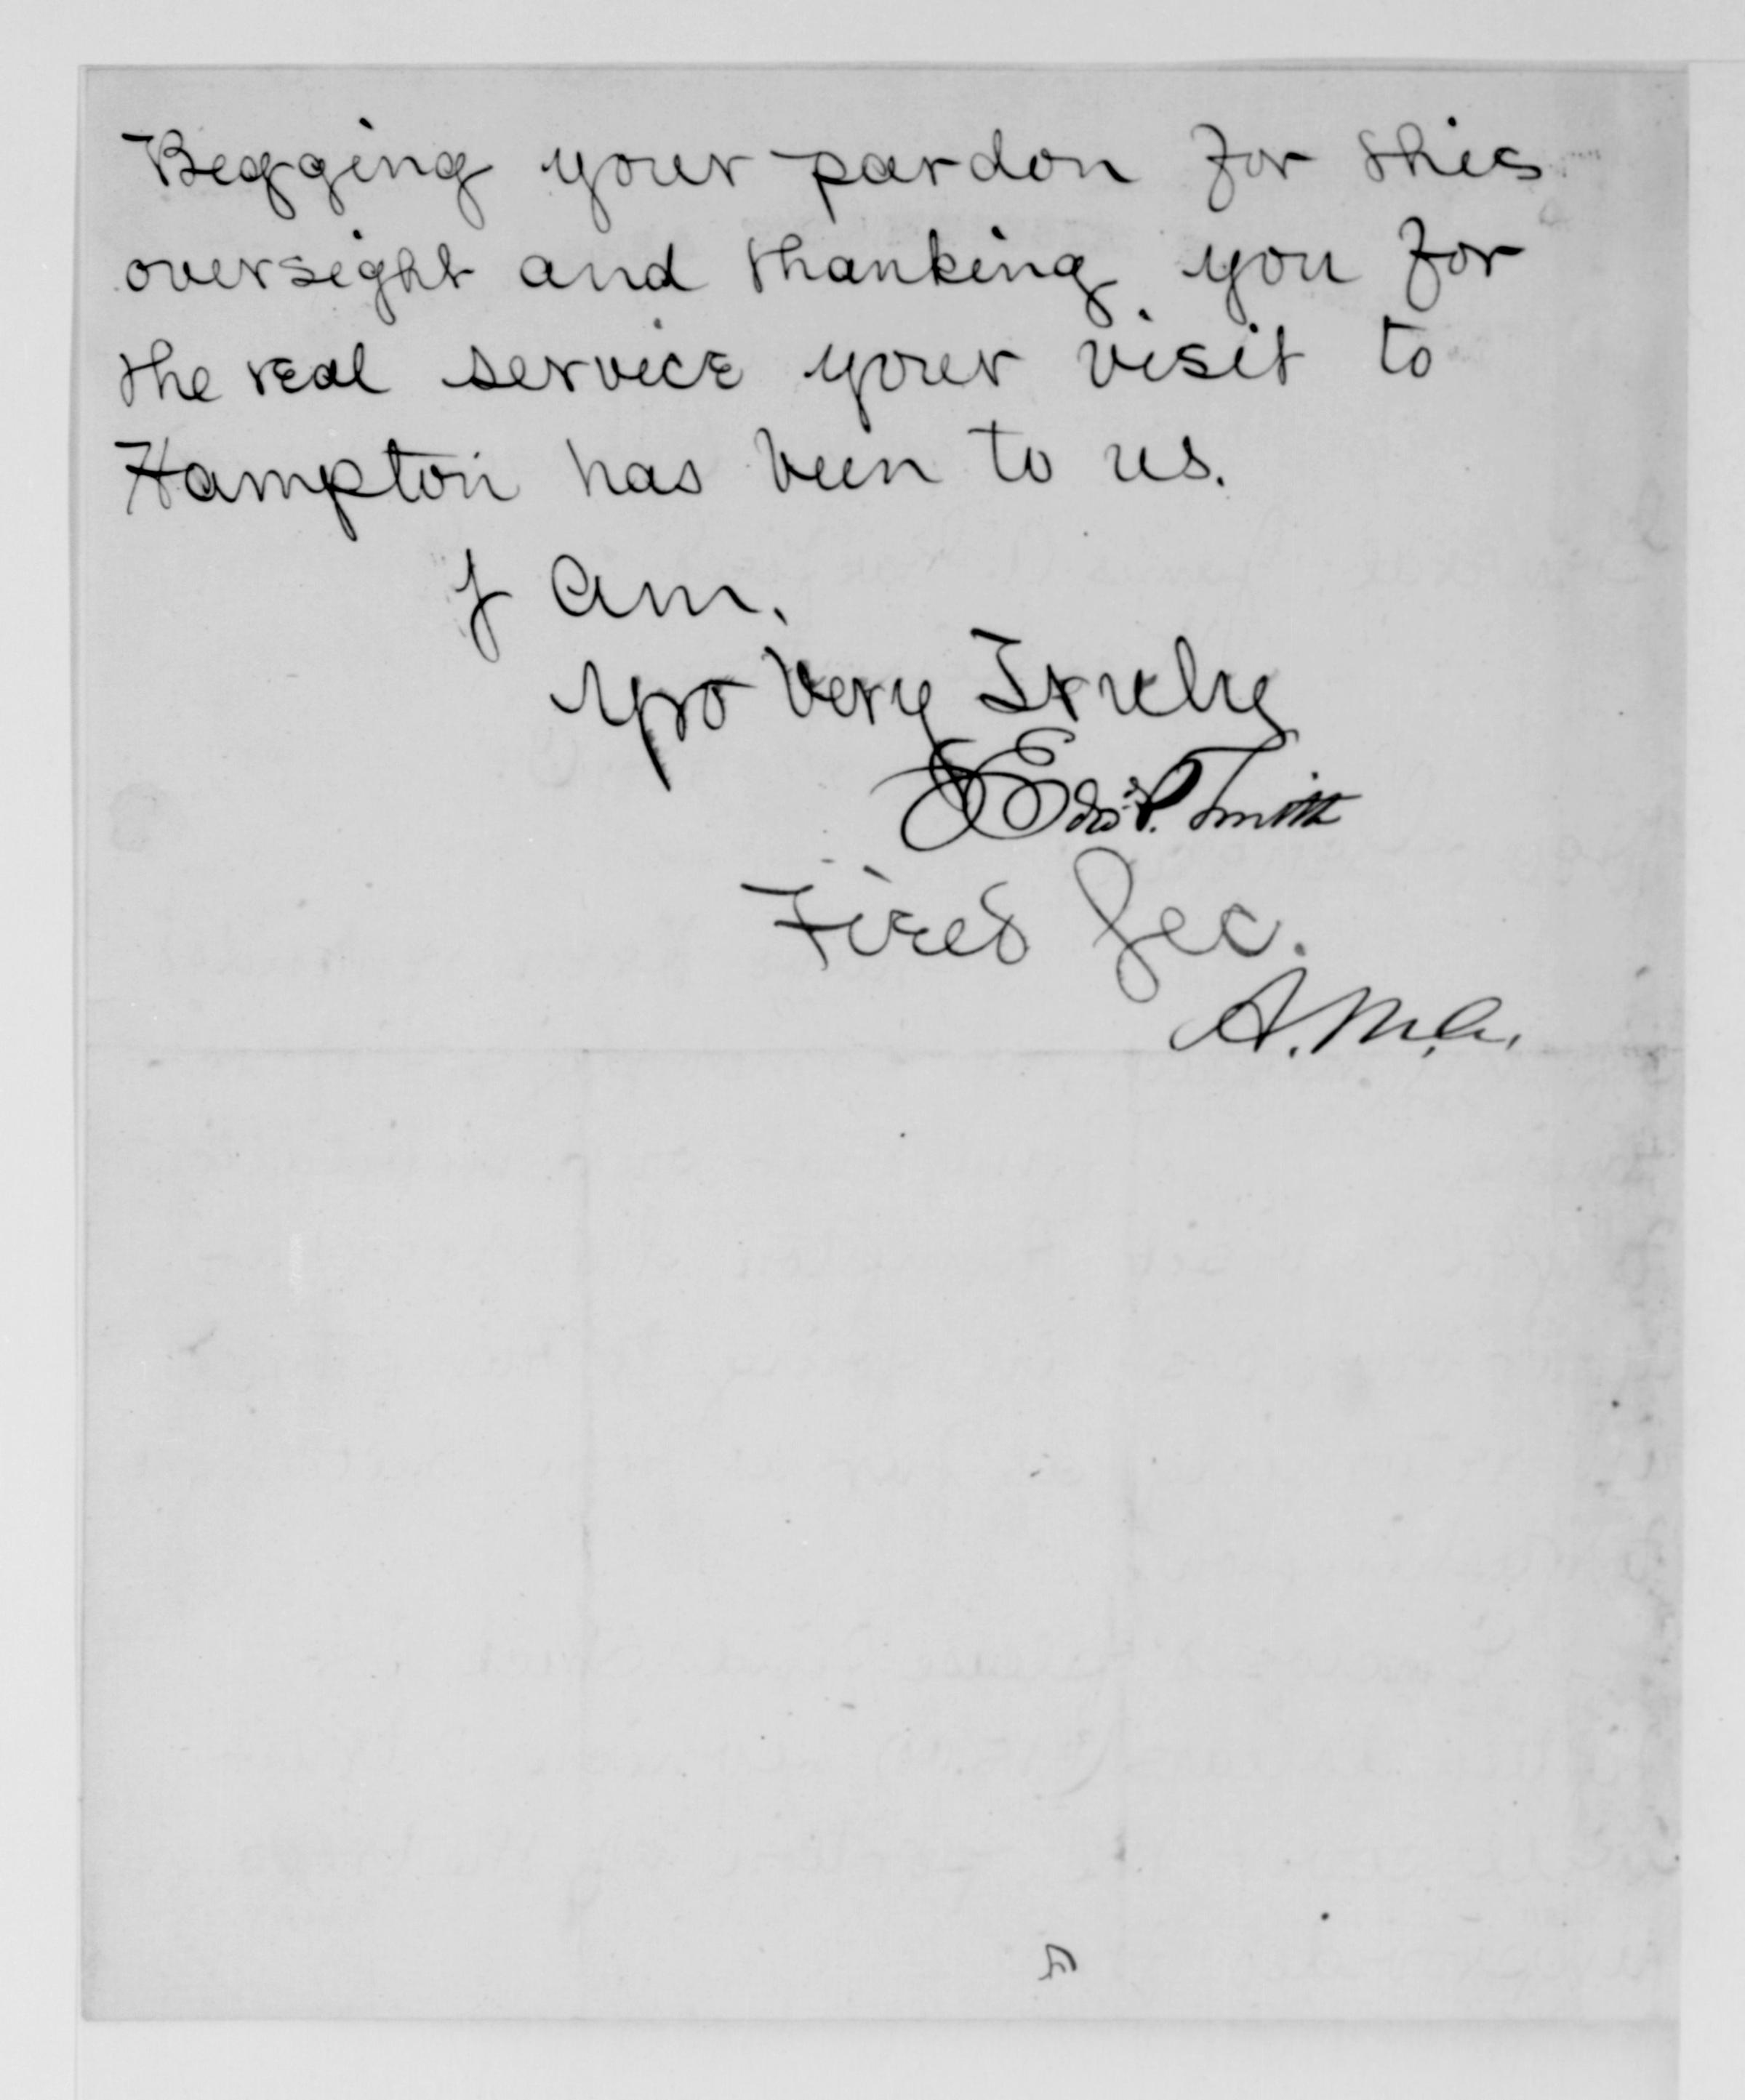 Begging your pardon for this
oversight and thanking you for
the real service your visit to
Hampton has been to us.
I am,
Yrs Very Truly
Edw. P. Smith
Field Sec.
A.M.A.